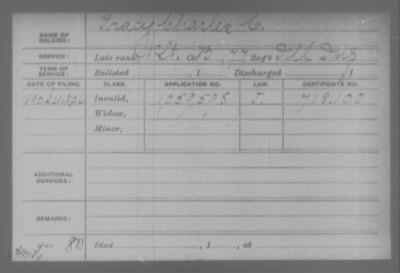 NAME OF SOLDIER: Tracy Charles C.
SERVICE: Late rank, Co. B, 77 Reg't Ill Inf
TERM OF SERVICE: Enlisted , 1 Discharged , 1
DATE OF FILING. CLASS. APPLICATION NO. LAW. CERTIFICATE NO.
Invalid, 1059,508 J. 718,100
Widow,
Minor,
ADDITIONAL SERVICES:
REMARKS:
Died , 1 , at